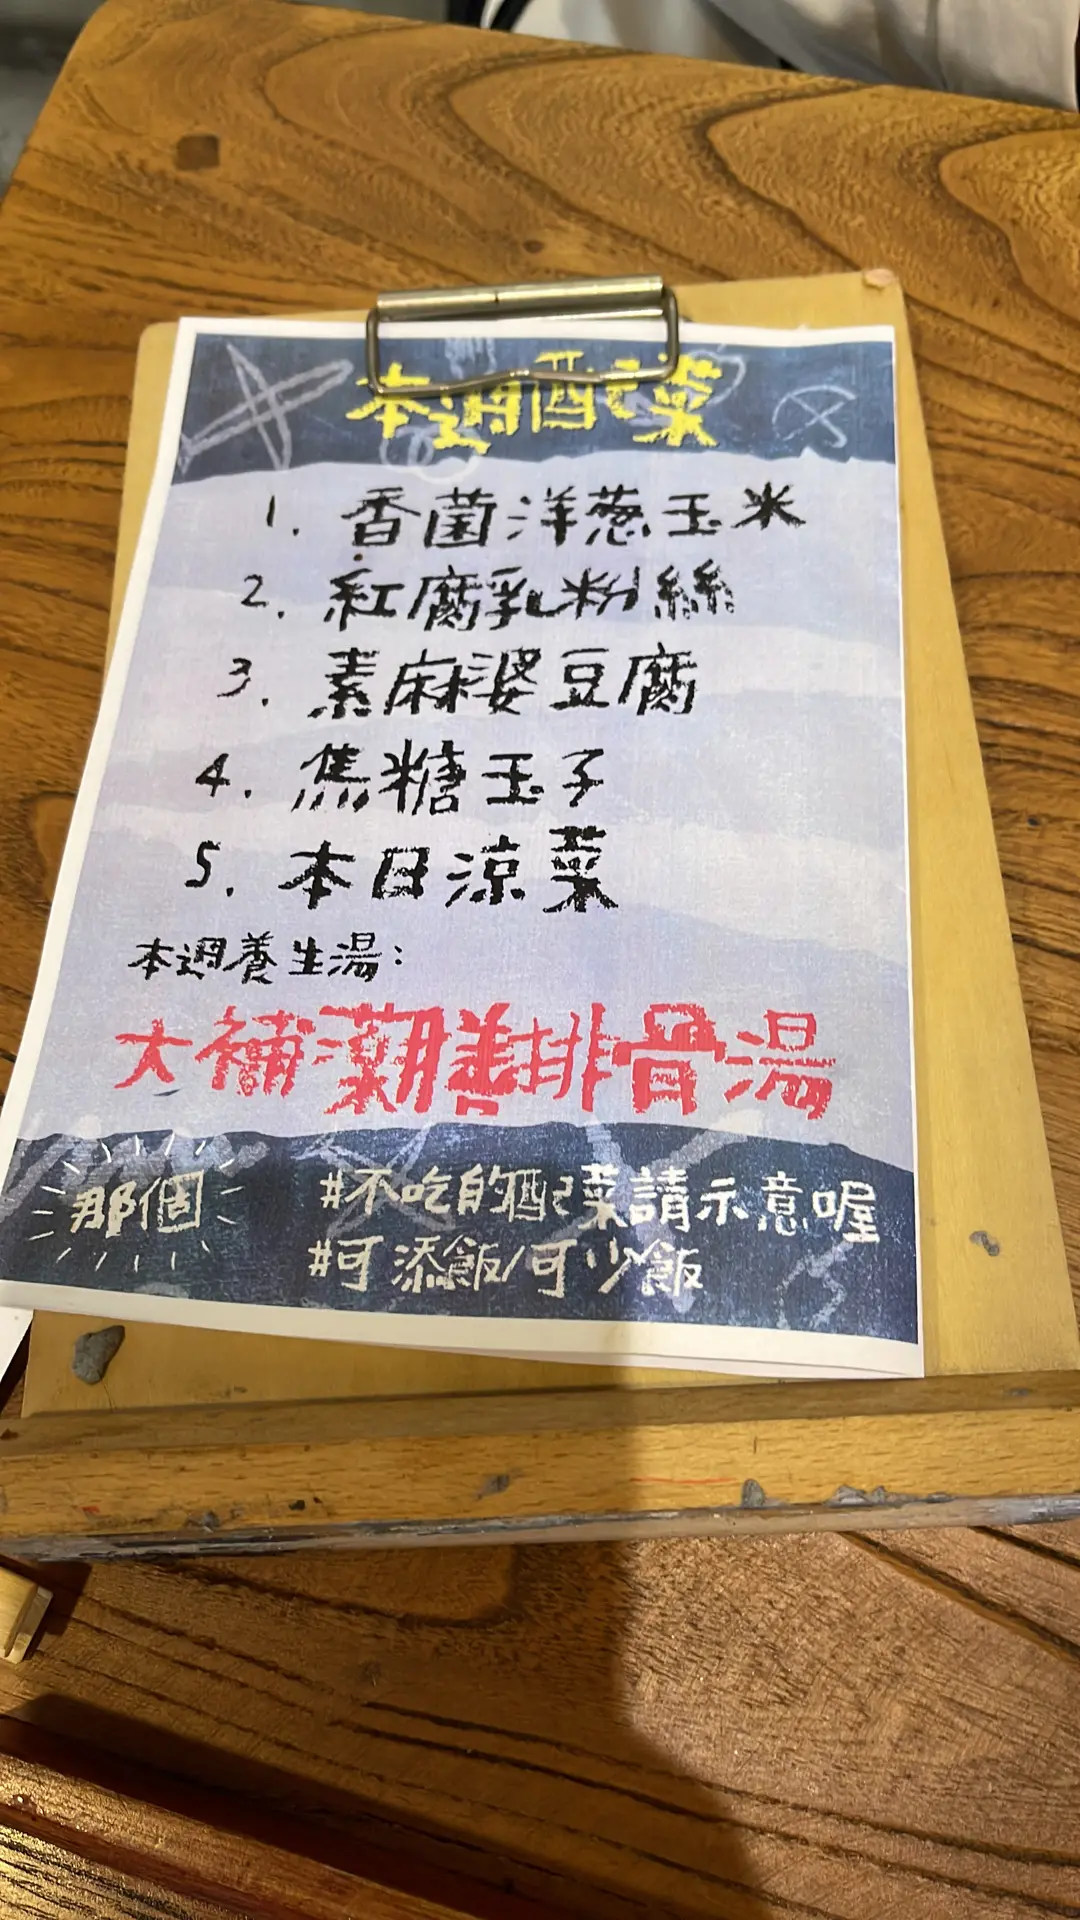 本週配菜
1. 香菌洋蔥玉米
2. 紅腐乳粉絲
3. 素麻婆豆腐
4. 焦糖玉子
5. 本日涼菜
本週養生湯:
大補藥膳排骨湯
那個
#不吃的配菜請示意喔
#可添飯/可少飯